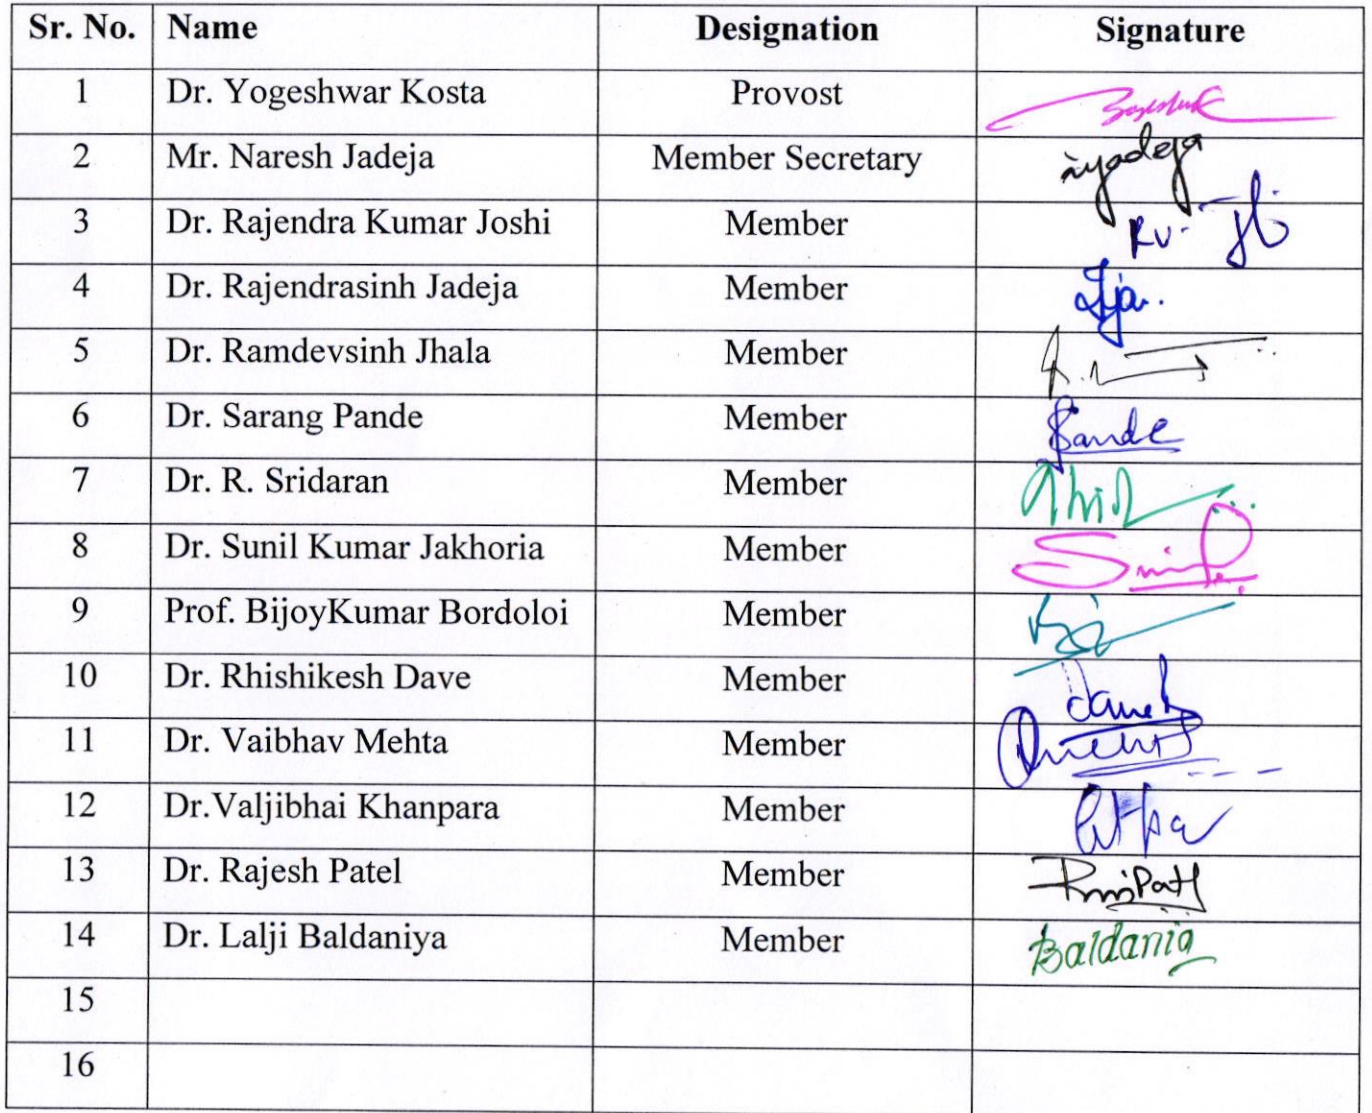 Sr. No. Name Designation Signature
1 Dr. Yogeshwar Kosta Provost
2 Mr. Naresh Jadeja Member Secretary
3 Dr. Rajendra Kumar Joshi Member
4 Dr. Rajendrasinh Jadeja Member
5 Dr. Ramdevsinh Jhala Member
6 Dr. Sarang Pande Member
7 Dr. R. Sridaran Member
8 Dr. Sunil Kumar Jakhoria Member
9 Prof. BijoyKumar Bordoloi Member
10 Dr. Rhishikesh Dave Member
11 Dr. Vaibhav Mehta Member
12 Dr.Valjibhai Khanpara Member
13 Dr. Rajesh Patel Member
14 Dr. Lalji Baldaniya Member Baldania
15
16